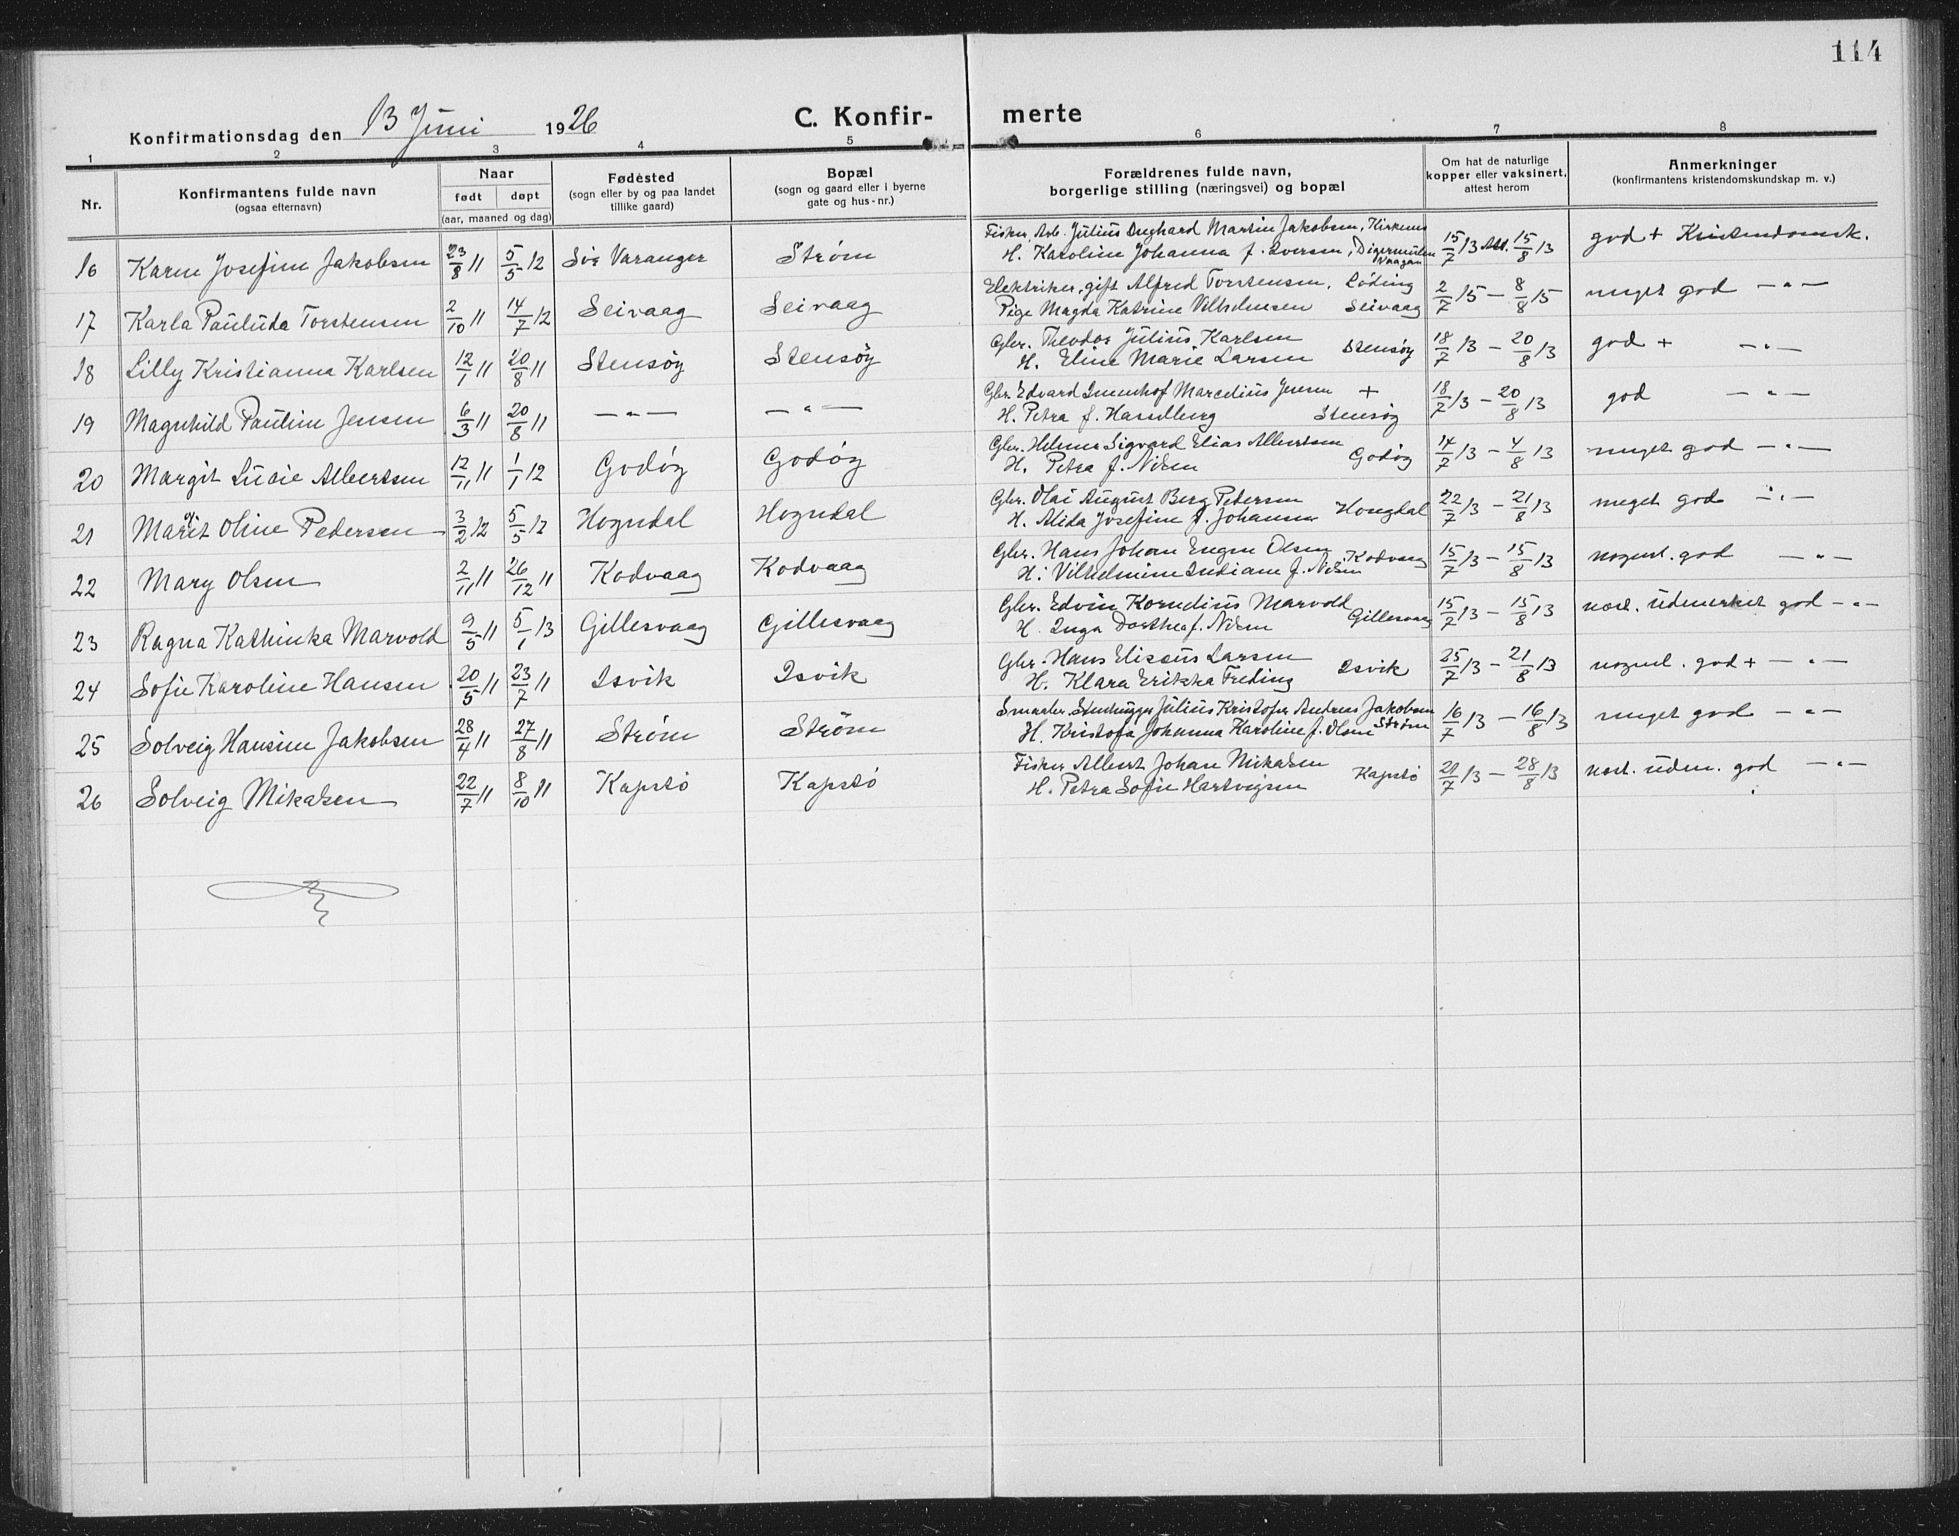 114
Konfirmationsdag den 13 Juni 1926 C. Konfir- merte
1 2 3 4 5 6 7 8
Nr. Konfirmantens fulde navn (ogsaa efternavn) Naar født døpt (aar, maaned og dag) Fødested (sogn eller by og paa landet tillike gaard) Bopæl (sogn og gaard eller i byerne gate og hus-nr.) Forældrenes fulde navn, borgerlige stilling (næringsvei) og bopæl Om hat de naturlige kopper eller vaksinert, attest herom Anmerkninger (konfirmantens kristendomskundskap m. v.)
Fisker, Arb. Julius Martin Jakobsen, Kirkenes
16 Karen Josefine Jakobsen 23/8 11 5/5 12 Sør Varanger Strøm H. Karoline Johanna f. Iversen, Digermulen Vaagan 15/7 13 Att. 15/8 13 god + Kristendomsk.
Elektriker, gift Alfred Torstensen, Løding
17 Karla Pauluda Torstensen 2/10 11 14/7 12 Seivaag Seivaag Pige Magda Katrine Vilhelmsen Seivaag 2/7 15 — 8/8 15 meget god — " —
Gbr. Theodor Julius Karlsen
18 Lilly Kristianna Karlsen 12/1 11 20/8 11 Stensøy Stensøy H. Eline Marie Larsen Stensøy 18/7 13 — 20/8 13 god + — " —
Gbr. Edvard Marcelius Jensen +
19 Magnhild Pauline Jensen 6/3 11 20/8 11 — " — — " — H. Petra f. Hasselberg Stensøy 18/7 13 — 20/8 13 god — " —
Gbr. Helmer Sigvard Elias Albertsen
20 Margit Lucie Albertsen 12/11 11 1/1 12 Godøy Godøy H. Petra f. Nilsen Godøy 14/7 13 — 4/8 13 meget god — " —
Gbr. Olai August Berg Pedersen
21 Marit Oline Pedersen 3/2 12 5/5 12 Hogndal Hogndal H. Alida Josefine f. Johansen Hongdal 22/7 13 — 21/8 13 meget god — " —
Gbr. Hans Johan Eugen Olsen
22 Mary Olsen 2/11 11 26/12 11 Kodvaag Kodvaag H. Vilhelmine Indiane f. Nilsen Kodvaag 15/7 13 — 15/8 13 nogenl. god — " —
Gbr. Edvin Kornelius Marvold
23 Ragna Kathinka Marvold 9/5 11 5/1 13 Gillesvaag Gillesvaag H. Inga Dorthea f. Nilsen Gillesvaag 15/7 13 — 15/8 13 næst. udmerket god — " —
Gbr. Hans Elisæus Larsen
24 Sofie Karoline Hansen 20/5 11 23/7 11 Isvik Isvik H. Klara Erikka Freding Isvik 25/7 13 — 21/8 13 nogenl. god + — " —
Smaabr. Stenhugger Julius Kristofer Andreas Jakobsen
25 Solveig Hansine Jakobsen 28/4 11 27/8 11 Strøm Strøm H. Kristofa Johanna Karoline f. Olsen Strøm 16/7 13 — 16/8 13 meget god — " —
Fisker Albert Johan Mikalsen
26 Solveig Mikalsen 22/7 11 8/10 11 Kapstø Kapstø H. Petra Sofie Hartvigsen Kapstø 21/7 13 — 28/8 13 næst. udm. god — " —